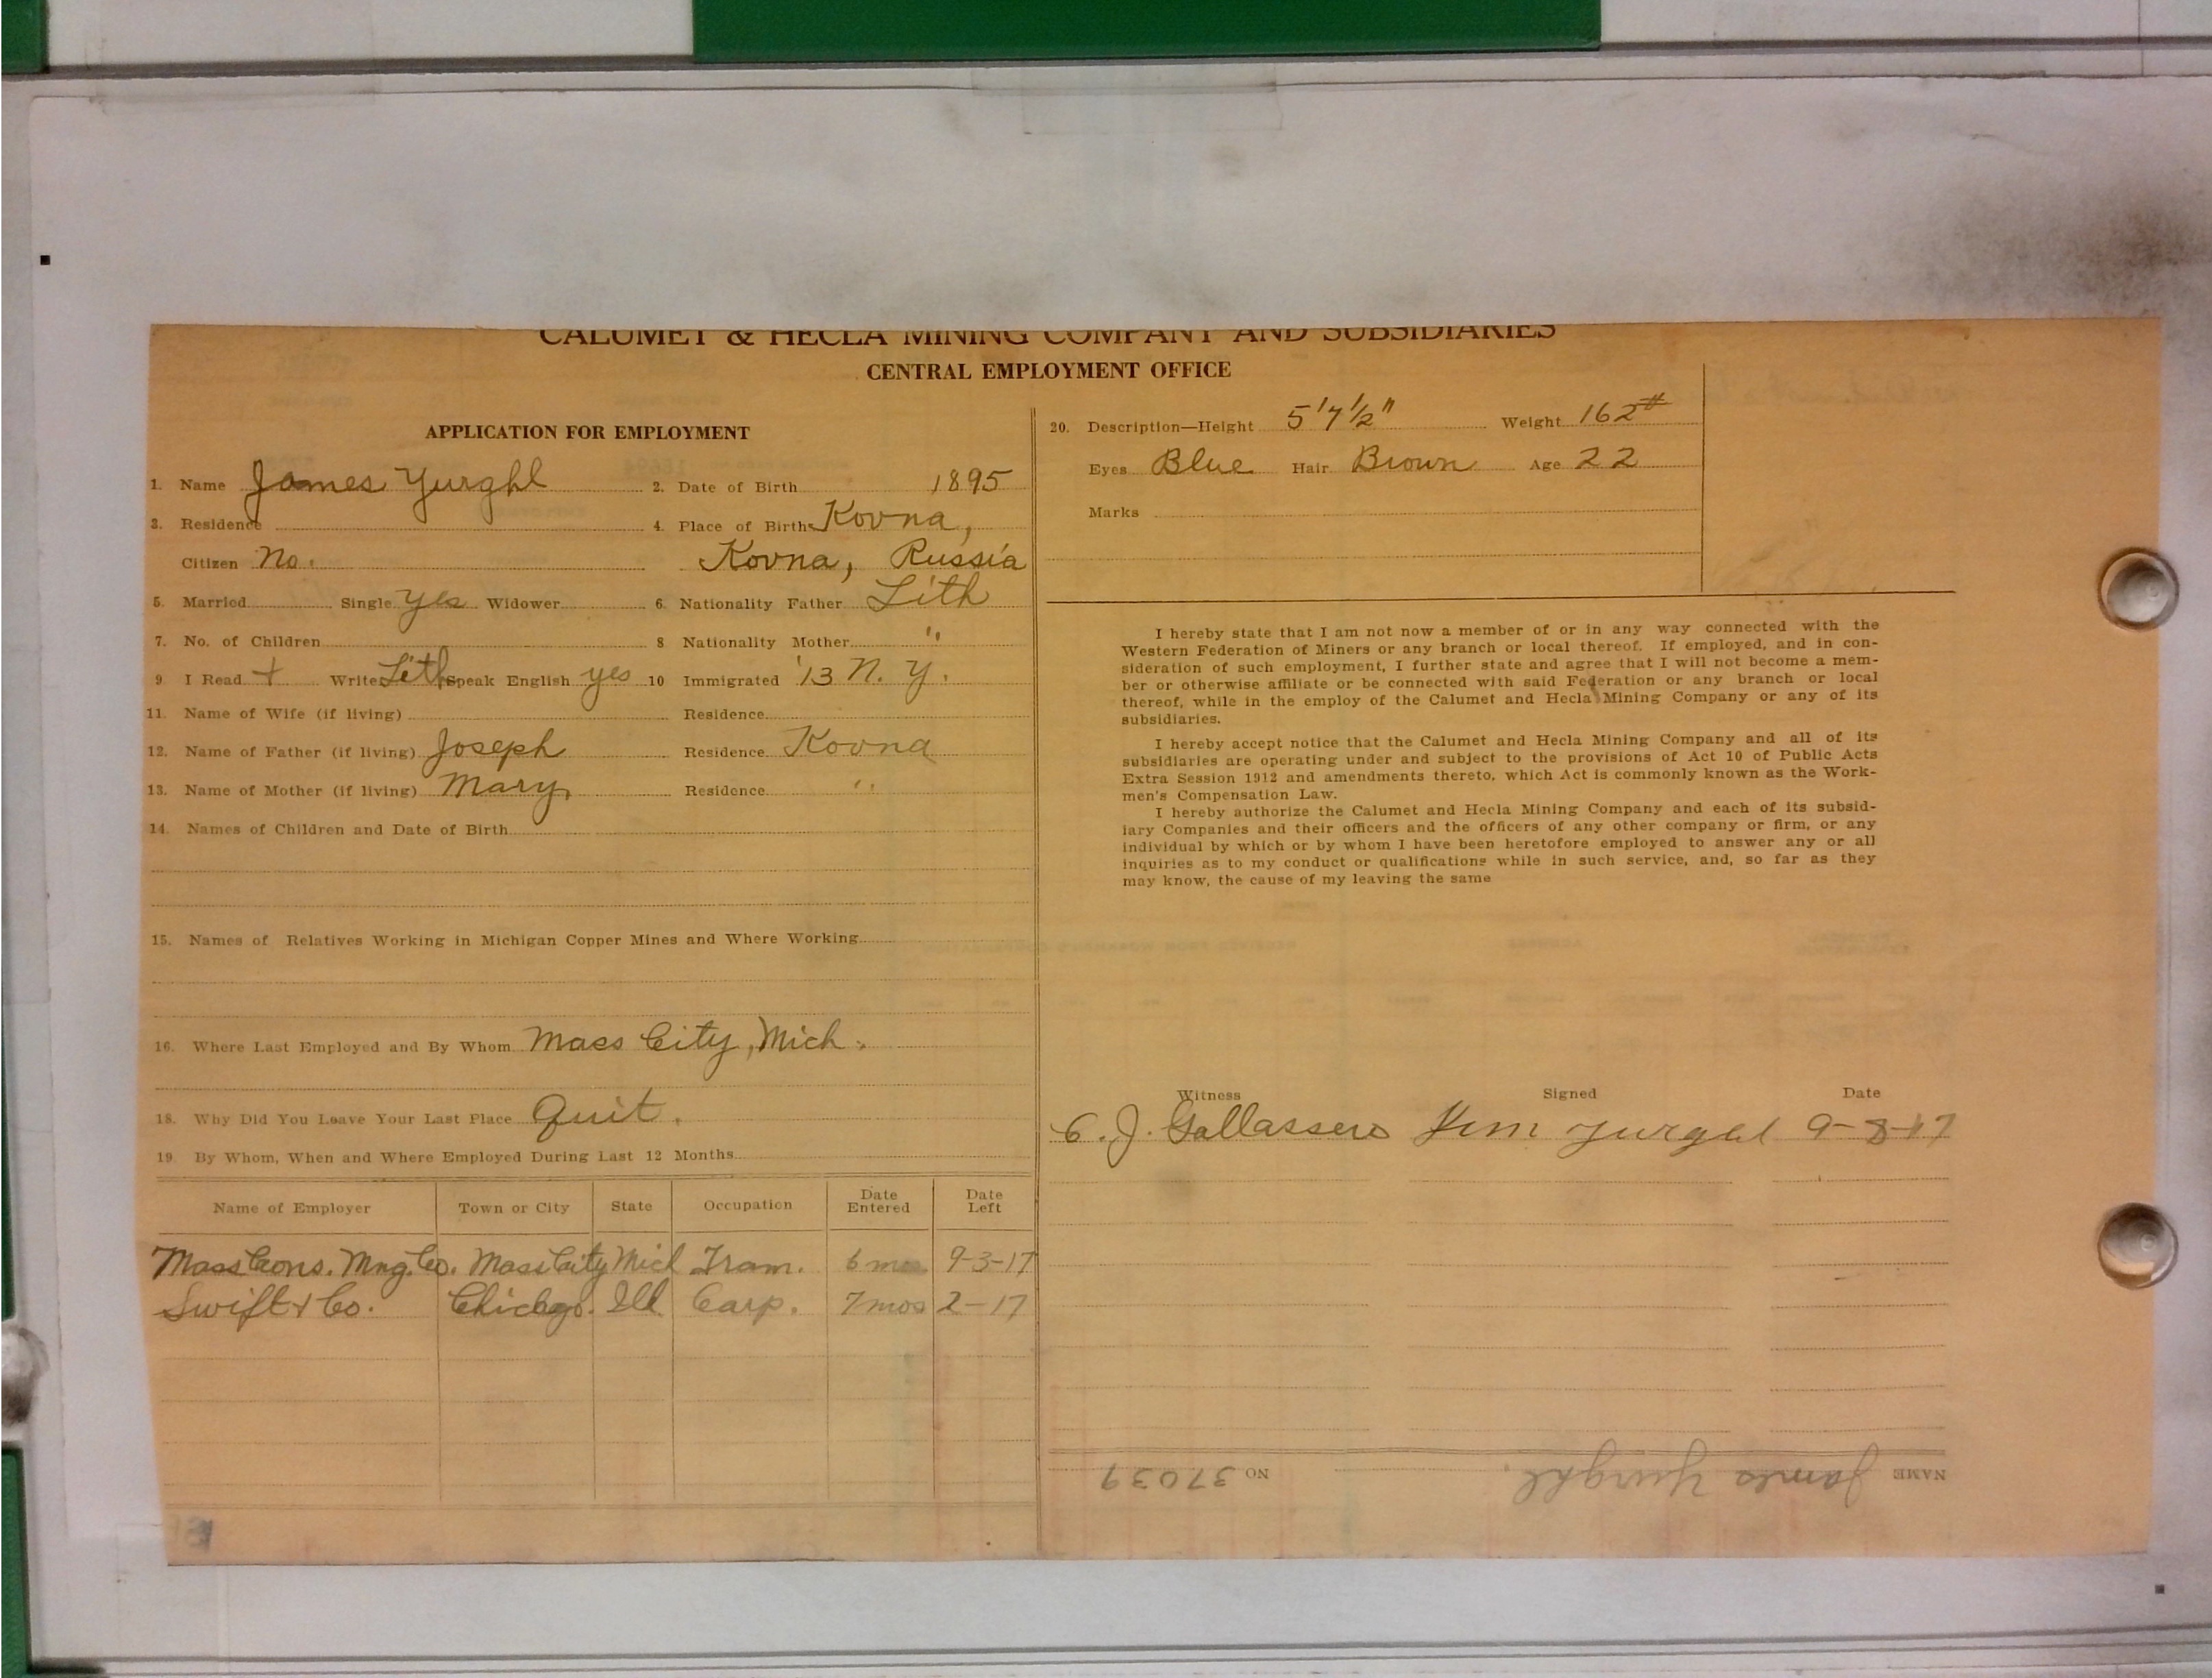 CALUMET & HECLA MINING COMPANY AND SUBSIDIARIES
CENTRAL EMPLOYMENT OFFICE
APPLICATION FOR EMPLOYMENT
1. Name James Yurghl 2. Date of Birth 1895
3. Residence 4. Place of Birth Kovna,
Citizen No. Kovna, Russia
5. Married Single yes Widower 6. Nationality Father Lith
7. No. of Children 8 Nationality Mother "
9 I Read + Write Lith Speak English yes 10 Immigrated '13 N. Y.
11. Name of Wife (if living) Residence
12. Name of Father (if living) Joseph Residence Kovna
13. Name of Mother (if living) Mary, Residence "
14. Names of Children and Date of Birth
15. Names of Relatives Working in Michigan Copper Mines and Where Working
16. Where Last Employed and By Whom Mass City, Mich.
18. Why Did You Leave Your Last Place Quit.
19. By Whom, When and Where Employed During Last 12 Months
Name of Employer Town or City State Occupation Date Entered Date Left
Mass Cons. Mng. Co. Mass City Mich Tram. 6 mos 9-3-17
Swift & Co. Chicago. Ill. Carp. 7 mos 2-17
20. Description—Height 5'7½" Weight 162#
Eyes Blue Hair Brown Age 22
Marks
I hereby state that I am not now a member of or in any way connected with the
Western Federation of Miners or any branch or local thereof. If employed, and in con-
sideration of such employment, I further state and agree that I will not become a mem-
ber or otherwise affiliate or be connected with said Federation or any branch or local
thereof, while in the employ of the Calumet and Hecla Mining Company or any of its
subsidiaries.
I hereby accept notice that the Calumet and Hecla Mining Company and all of its
subsidiaries are operating under and subject to the provisions of Act 10 of Public Acts
Extra Session 1912 and amendments thereto, which Act is commonly known as the Work-
men's Compensation Law.
I hereby authorize the Calumet and Hecla Mining Company and each of its subsid-
iary Companies and their officers and the officers of any other company or firm, or any
individual by which or by whom I have been heretofore employed to answer any or all
inquiries as to my conduct or qualifications while in such service, and, so far as they
may know, the cause of my leaving the same
Witness Signed Date
C. J. Gallassero Jim Yurghl 9-8-17
NAME James Yurghl. NO 37039